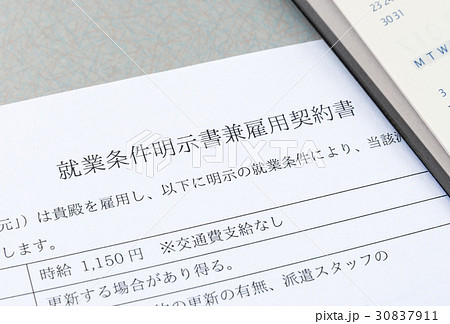 23 24
30 31
M T W
3
就業条件明示書兼雇用契約書
元」）は貴殿を雇用し、以下に明示の就業条件により、当該派
します。
時給 1,150円 ※交通費支給なし
更新する場合があり得る。
の更新の有無、派遣スタッフの
photostock.jp - 30837911